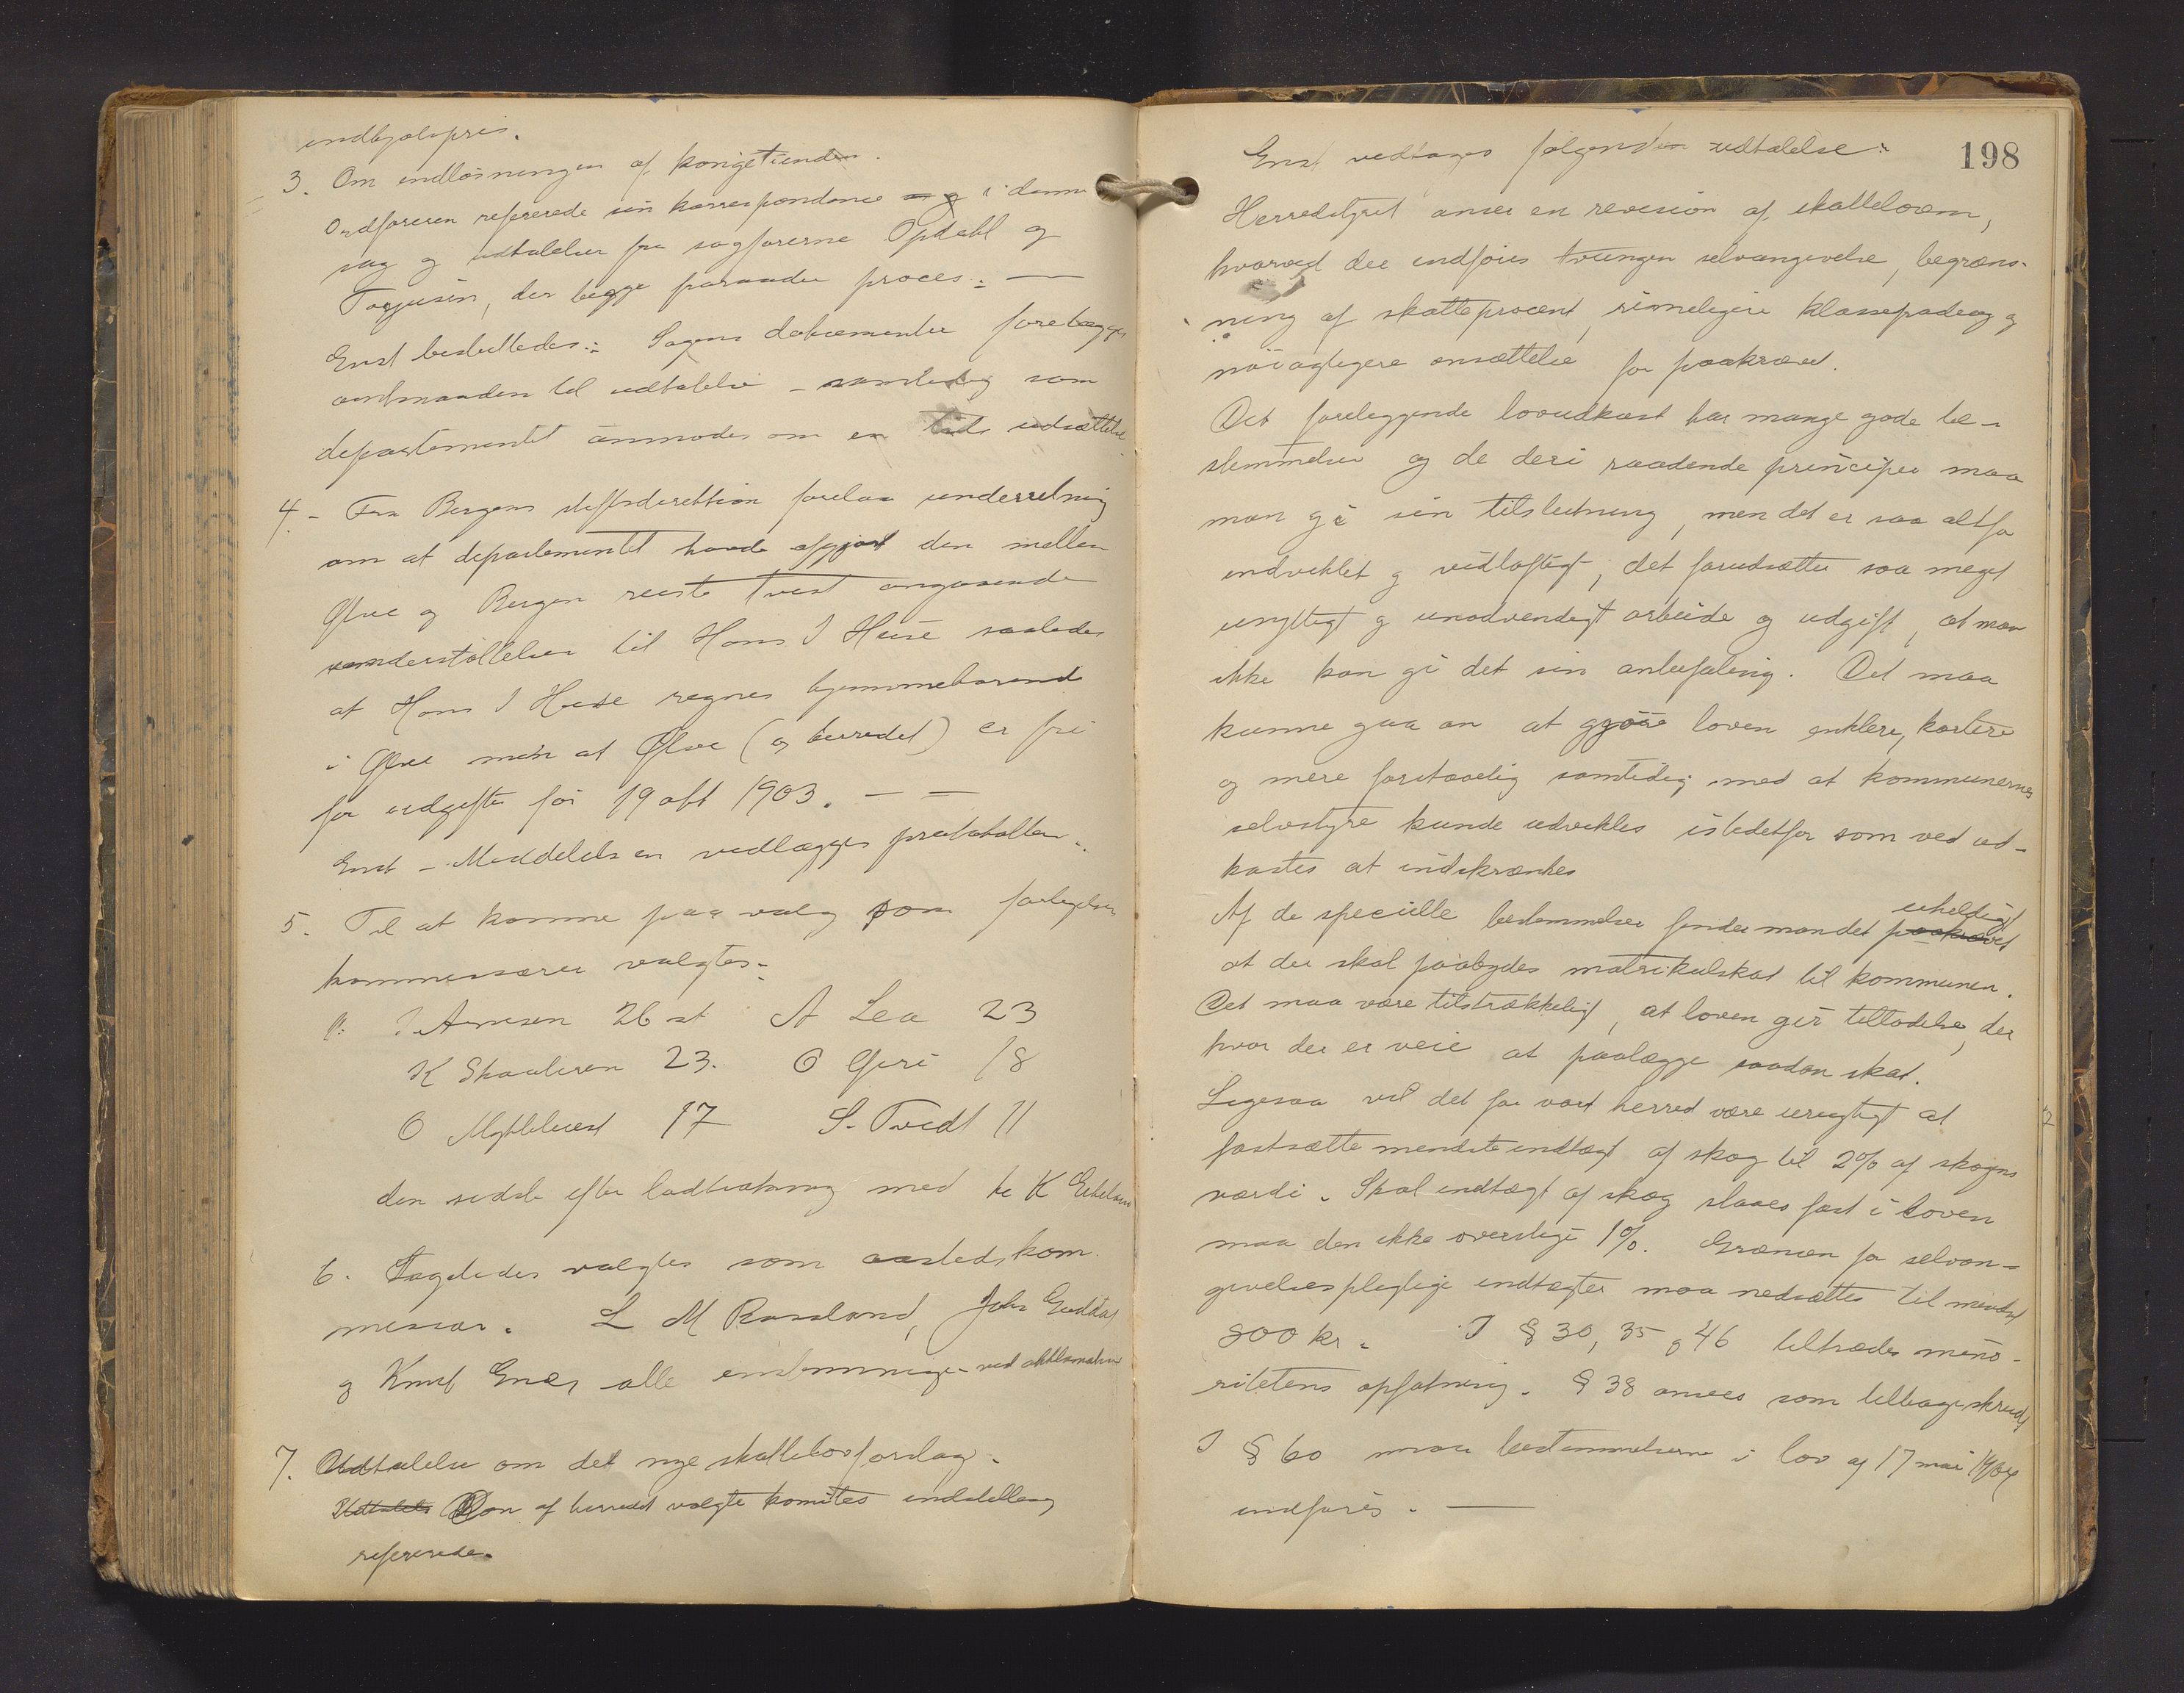 indkjøbspris.
3. Om indløsningen af kongetienden.
Ordføreren refererede sin korrespondance i denne
sag og udtalelser fra sagførerne Opdahl og
Torjusen, der begge fraraader proces: —
Enst besluttedes: Sagens dokumenter forelægges
amtmanden til udtalelse – samtidig som
departementet anmodes om en tids udsættelse
4. Fra Bergens stiftsdirektion forelaa underretning
om at departementet havde afgjort den mellem
Ølve og Bergen reiste tvist angaaende
understøttelsen til Hans J Heise saaledes
at Hans J Heise regnes hjemmehørende
i Ølve men at Ølve (og herredet) er fri
for udgifter før 19 okt 1903. — —
Enst – Meddelelsen vedlægges protokollen.
5. Til at komme paa valg som forligelses
kommissærer valgtes:
J. Arnesen 26 st A Lea 23
K Skaaleren 23. O Gjere 18
O Myklebust 17 S. Tvedt 11
den sidste efter lodtrækning med K
6. Ligeledes valgtes som aastedskom
missær. L M Rossland, John Guddal
og Knut Enæs alle enstemmige – ved akklamation
7. Udtalelse om det nye skattelovforslag.
Udtalelse Den af herredet valgte komites indstilling
refereredes.
198
Enst vedtoges følgende udtalelse:
Herredstyret anser en revision af skatteloven,
hvorved der indføies tvungen selvangivelse, begræns-
ning af skatteprocent, rimeligere klassefradrag og
nöiagtigere ansættelse for paakrævet.
Det foreliggende lovudkast har mange gode be-
stemmelser og de deri raadende principer maa
man gi sin tilslutning, men det er saa altfor
indviklet og vidløftigt; det forudsætter saa meget
unyttigt og unødvendigt arbeide og udgift, at man
ikke kan gi det sin anbefaling. Det maa
kunne gaa an at gjøre loven enklere, kortere
og mere forstaaelig samtidig med at kommunernes
selvstyre kunde udvikles istedetfor som ved ud-
kastet at indskrænkes
Af de specielle bestemmelser finder man det paakrævet uheldigt
at der skal paabydes matrikulskat til kommunen.
Det maa være tilstrækkeligt, at loven gir tilladelse, der
hvor der er veie at paalægge saadan skat.
Ligesaa vil det for vort herred være urigtigt at
fastsætte mindste indtægt af skog til 2% af skogens
værdi. Skal indtægt af skog slaaes fast i loven
maa den ikke overstige 1%. Grænsen for selvan-
givelsespligtige indtægter maa nedsættes til mindst
800 kr. I § 30, 35 og 46 tiltrædes mino-
ritetens opfatning. § 38 ansees som tilbageskridt
I § 60 maa bestemmelserne i lov af 17 mai 1904
indføres. —